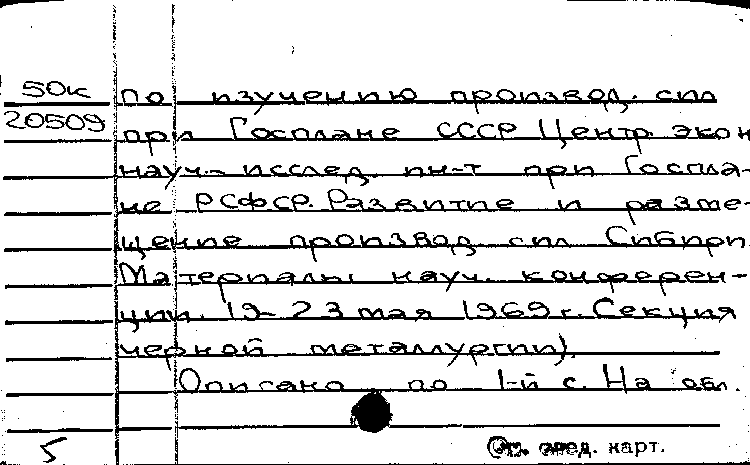 50к по изучению производ. сил
20509 при Госплане СССР Центр. экон
науч.-исслед. ин-т при Госпла-
не РСФСР. Развитие и разме-
щение производ. сил Сибири.
Материалы науч. конферен-
ции. 19-23 мая 1969 г. Секция
черной металлургии).
Описано по 1-й с. На обл.
5 См. след. карт.